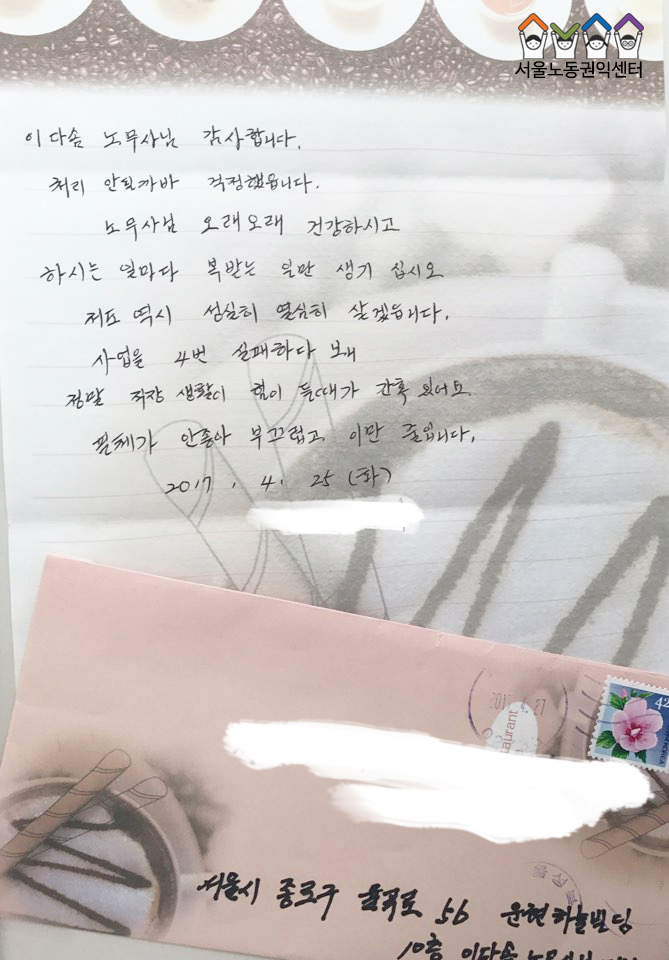 서울노동권익센터
이다솜 노무사님 감사합니다.
처리 안될까바 걱정했읍니다.
노무사님 오래오래 건강하시고
하시는 일마다 복받는 일만 생기 십시오
저도 역시 성실히 열심히 살겠읍니다.
사업을 4번 실패하다 보니
정말 직장 생활이 힘이 들때가 간혹 있어요
필체가 안좋아 부끄럽고 이만 줄입니다.
2017. 4. 25 (화)
4. 27
42
KOREA
서울시 종로구 율곡로 56 운현하늘빌딩
10층 이다솜 노무사